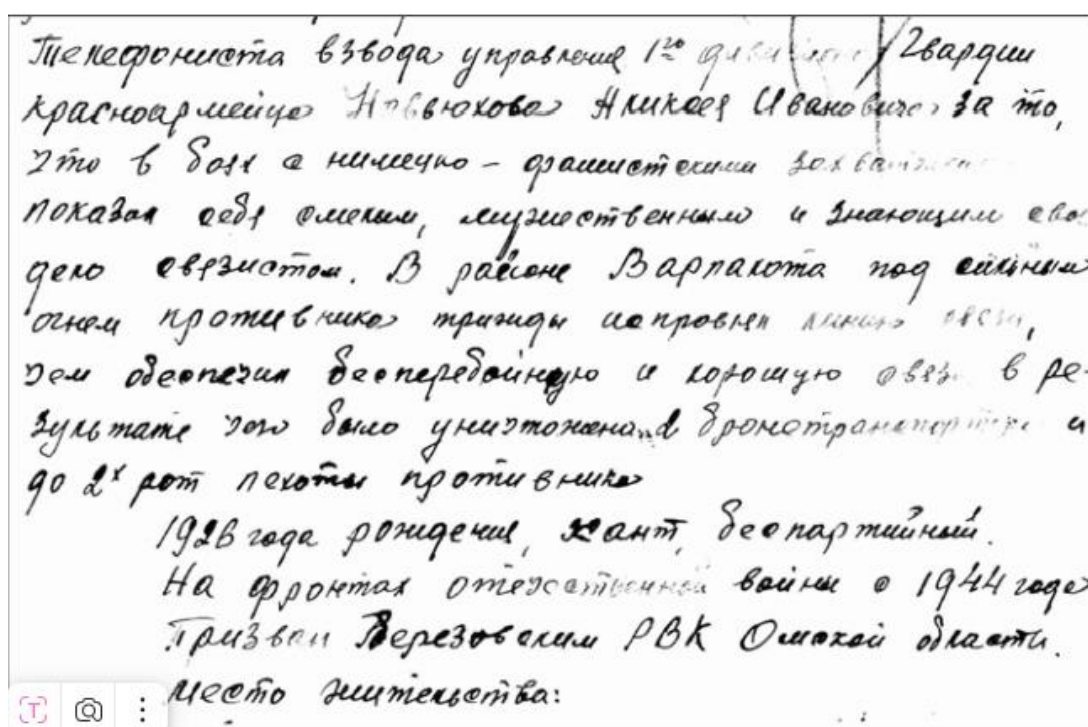 Телефониста взвода управления 1го дивизиона Гвардии
красноармейца Алексея Ивановича за то,
что в боях с нимецко - фашистскими захватчиками
показал себя смелым, мужественным и знающим свое
дело связистом. В районе Варпалота под сильным
огнем противника трижды исправлял линию связи,
чем обеспечил бесперебойную и хорошую связь в ре-
зультате чего было уничтожено 2 бронетранспортера и
до 2х рот пехоты противника
1926 года рождения, хант, беспартийный.
На фронтах отечественной войны с 1944 года
Призван Березовским РВК Омской области.
Место жительства: